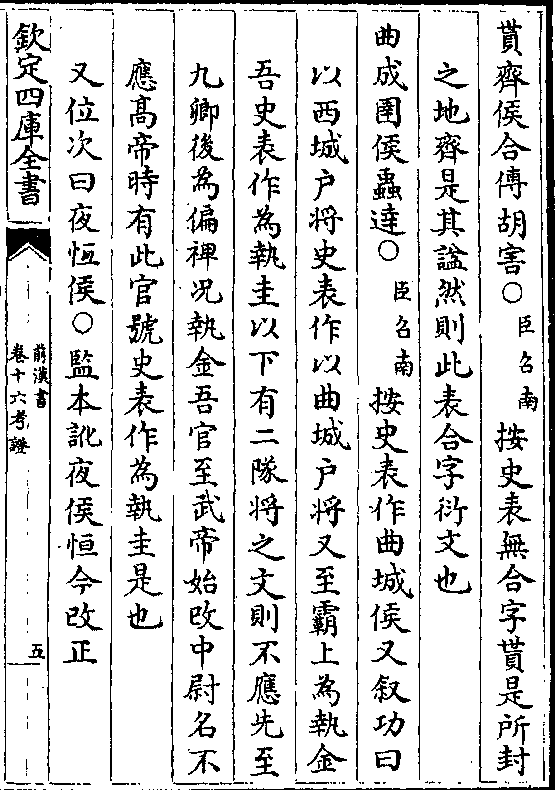 貰齊侯合傅胡害○臣召南按史表無合字貰是所封
之地齊是其諡然則此表合字衍文也
曲成圉侯蟲達○臣召南按史表作曲城侯又叙功曰
以西城户将史表作以曲城户将又至霸上為執金
吾史表作為執圭以下有二隊將之文則不應先至
九卿後為偏裨况執金吾官至武帝始改中尉名不
應髙帝時有此官號史表作為執圭是也
又位次曰夜恆侯○監本訛夜侯恒今改正
欽定四庫全書
前漢書
卷十六考證
五